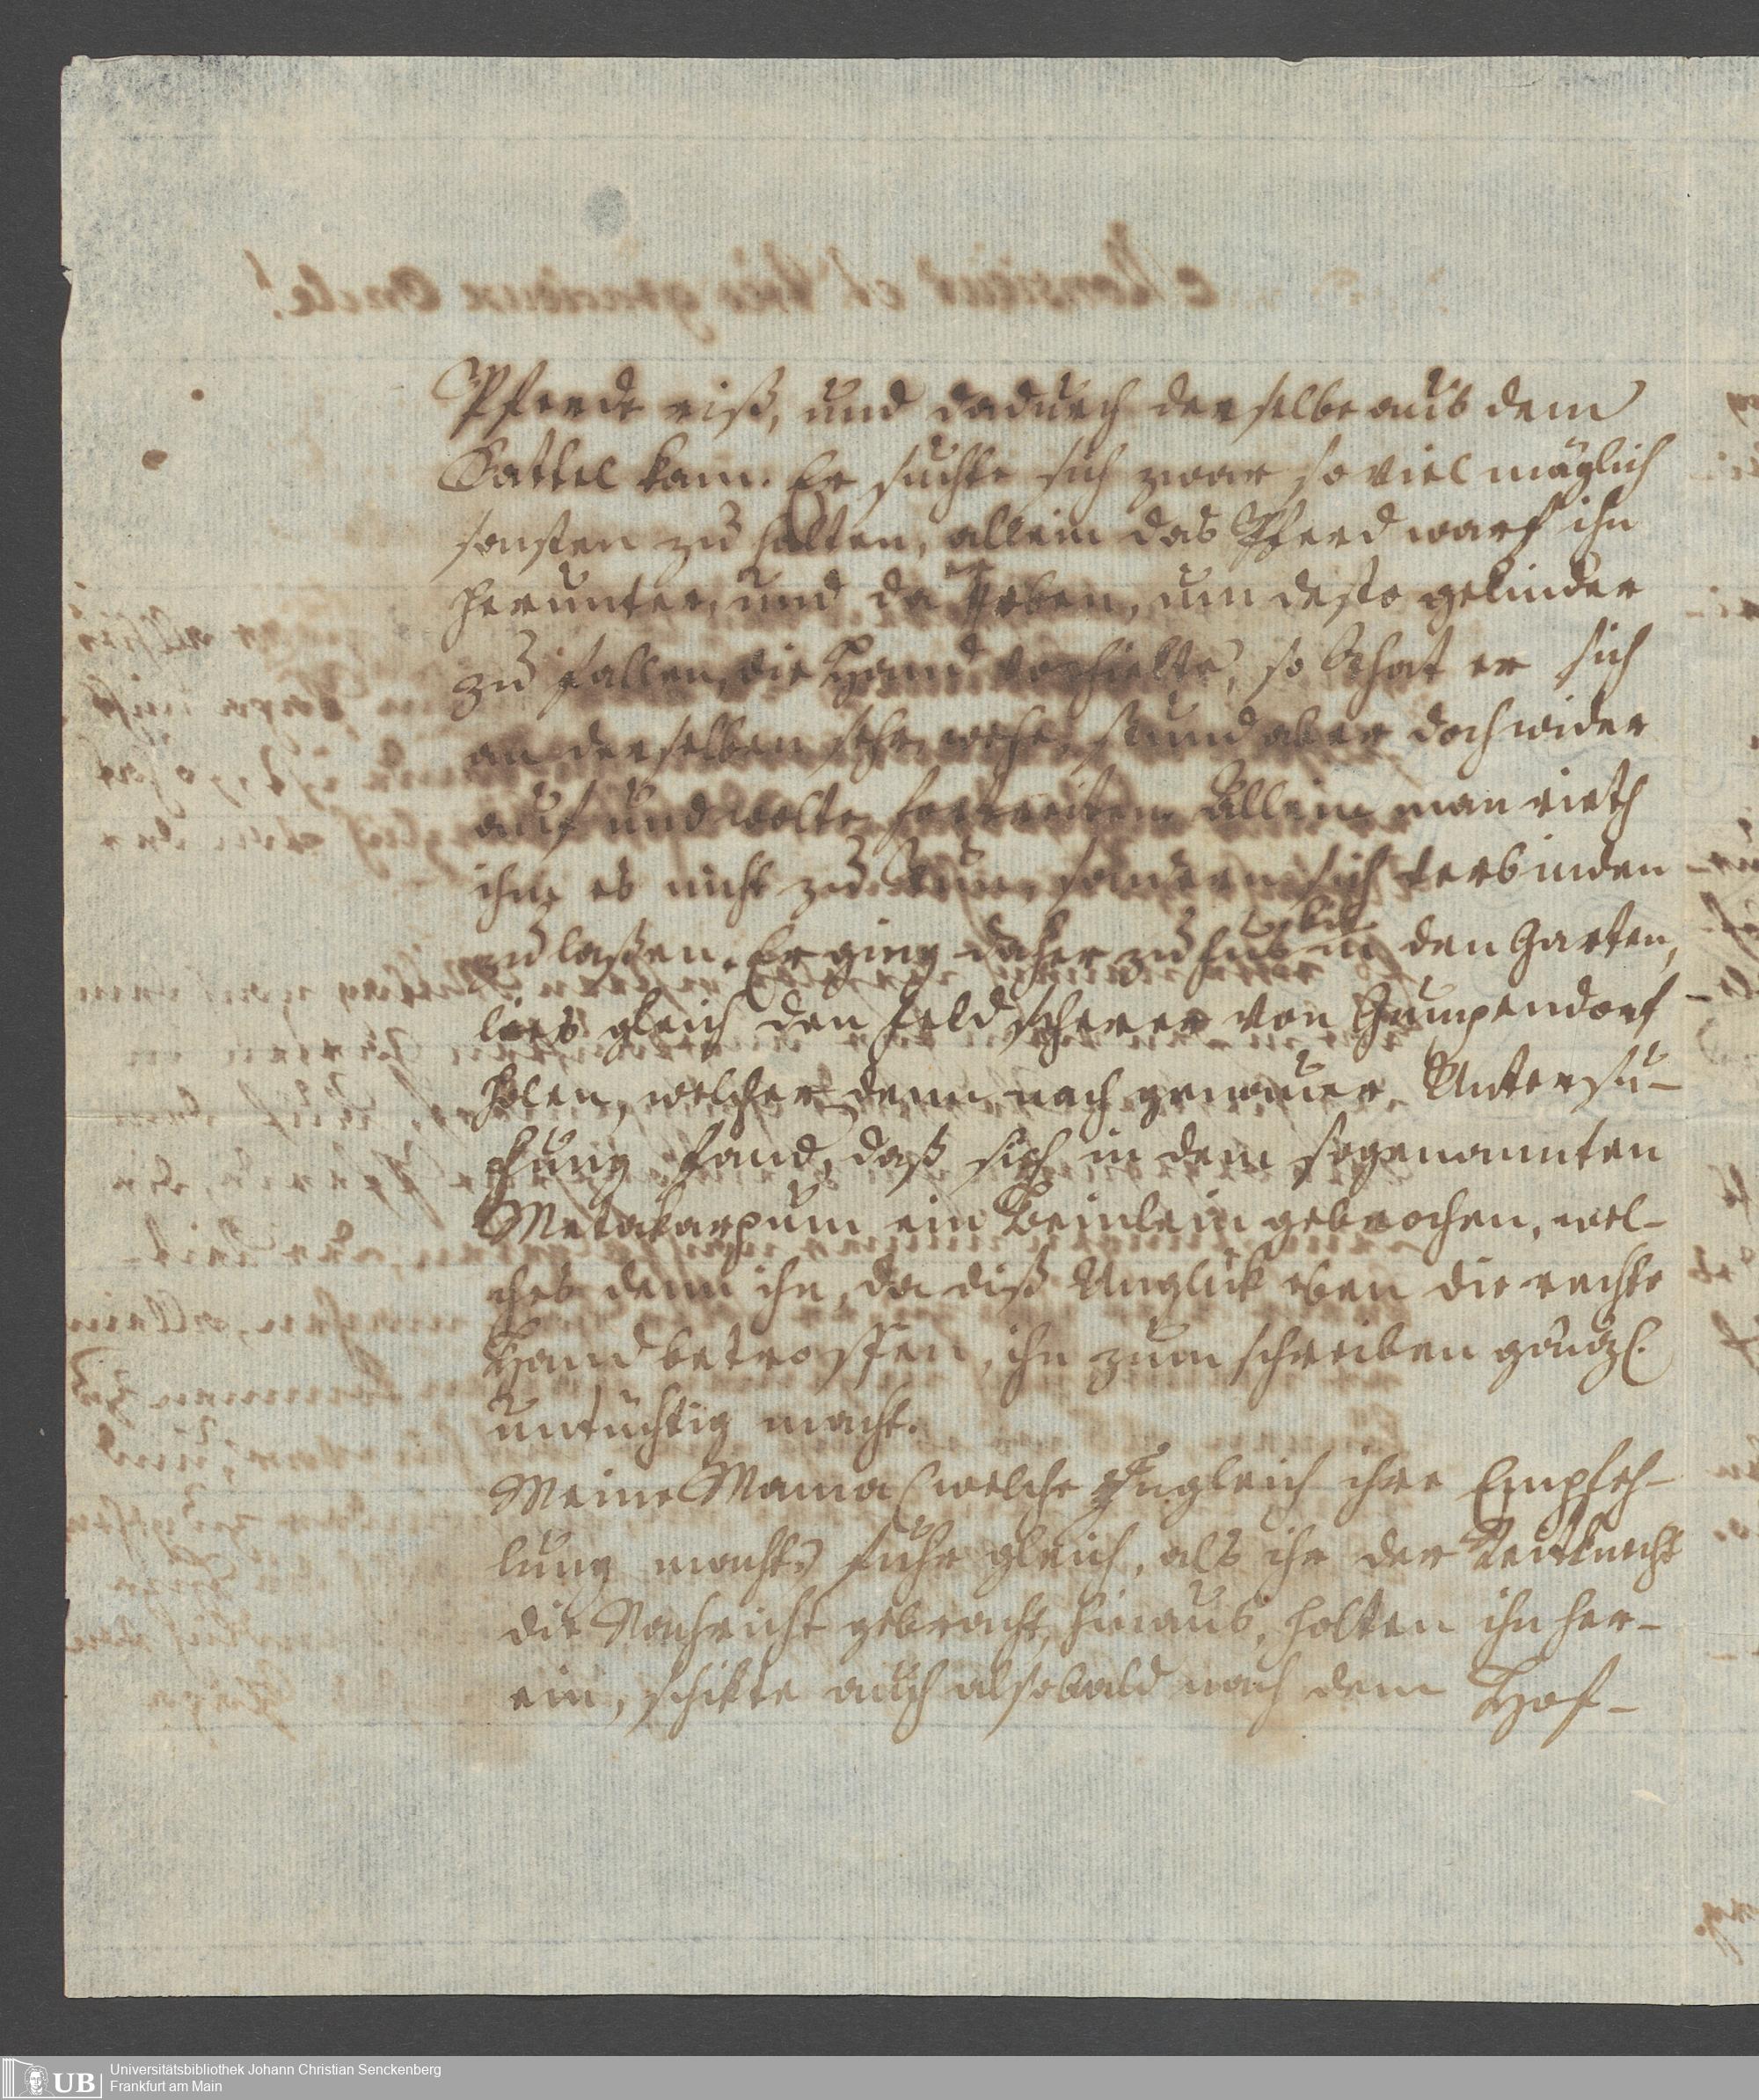 Pferde riß, und dadurch derselbe aus dem
Sattel kam. Er suchte sich zwar so viel möglich
sonsten zu halten, allein das Pferd warf ihn
herunter, und da Er oben, um desto gelinder
zu fallen, die Hand vorhielte, so that er sich
an derselben sehr wehe, stund aber doch wider
auf und wolte fortreiten. Allein man rieth
ihm es nicht zu thun, sondern sich verbinden
zu laßen. Er ging daher zu fus bis in den Garten,
lies gleich den Feldscherer von Gumpendorf
holen, welcher denn nach genauer Untersu-
chung fand, daß sich in dem sogenannten
Metakarpum ein Beinlein gebrochen, wel-
ches denn ihn, da diß Unglük eben die rechte
Hand betroffen, ihn zum schreiben gänzl.
untüchtig macht.
Meine Mama (welche Zugleich ihre Empfeh-
lung macht) fuhr gleich, als ihr der Reitknecht
die Nachricht gebracht, hinaus, holten ihn her-
ein, schikte auch alsobald nach dem Hof-
UB Universitätsbibliothek Johann Christian Senckenberg
Frankfurt am Main